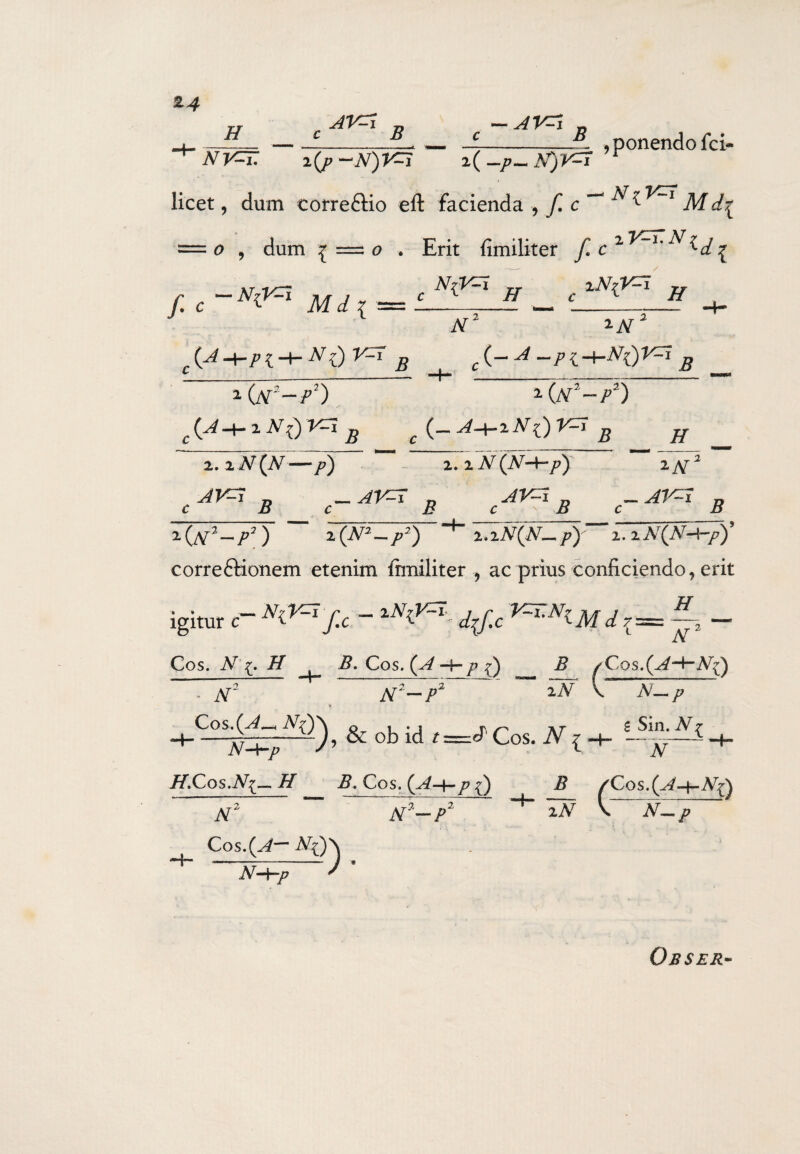 24
+ H / N√-1. — c^{A√-1} B / 2(p—N)√-1 — c^{—A√-1} B / 2(—p—N)√-1 , ponendo sci-
licet , dum correctio est facienda , ∫. c^{— Nz√-1} M dz
= o , dum z = o . Erit similiter ∫. c^{2√-1. Nz} dz
∫. c^{—Nz√-1} M dz = c^{Nz√-1} H / N² — c^{2Nz√-1} H / 2N² +
c^{(A+pz+Nz)√-1} B / 2(N²—p²) + c^{(—A—pz+Nz)√-1} B / 2(N²—p²) —
c^{(A+2Nz)√-1} B / 2. 2N(N—p) — c^{(—A+2Nz)√-1} B / 2. 2N(N+p) — H / 2N² —
c^{A√-1} B / 2(N²—p²) — c^{—A√-1} B / 2(N²—p²) + c^{A√-1} B / 2.2N(N—p) — c^{—A√-1} B / 2. 2N(N+p),
correctionem etenim similiter , ac prius conficiendo, erit
igitur c^{—Nz√-1} ∫.c^{—2Nz√-1} dz∫.c^{√-1.Nz} M dz = H / N² —
Cos. Nz. H / N² + B. Cos. (A+pz) / N²—p² — B / 2N (Cos.(A+Nz) / N—p
+ Cos.(A—Nz) / N+p), & ob id t=δ Cos. Nz + ε Sin. Nz / N +
H.Cos.Nz— H / N² — B. Cos. (A+pz) / N²—p² + B / 2N (Cos.(A+Nz) / N—p
+ Cos.(A—Nz) / N+p) .
OBSER-